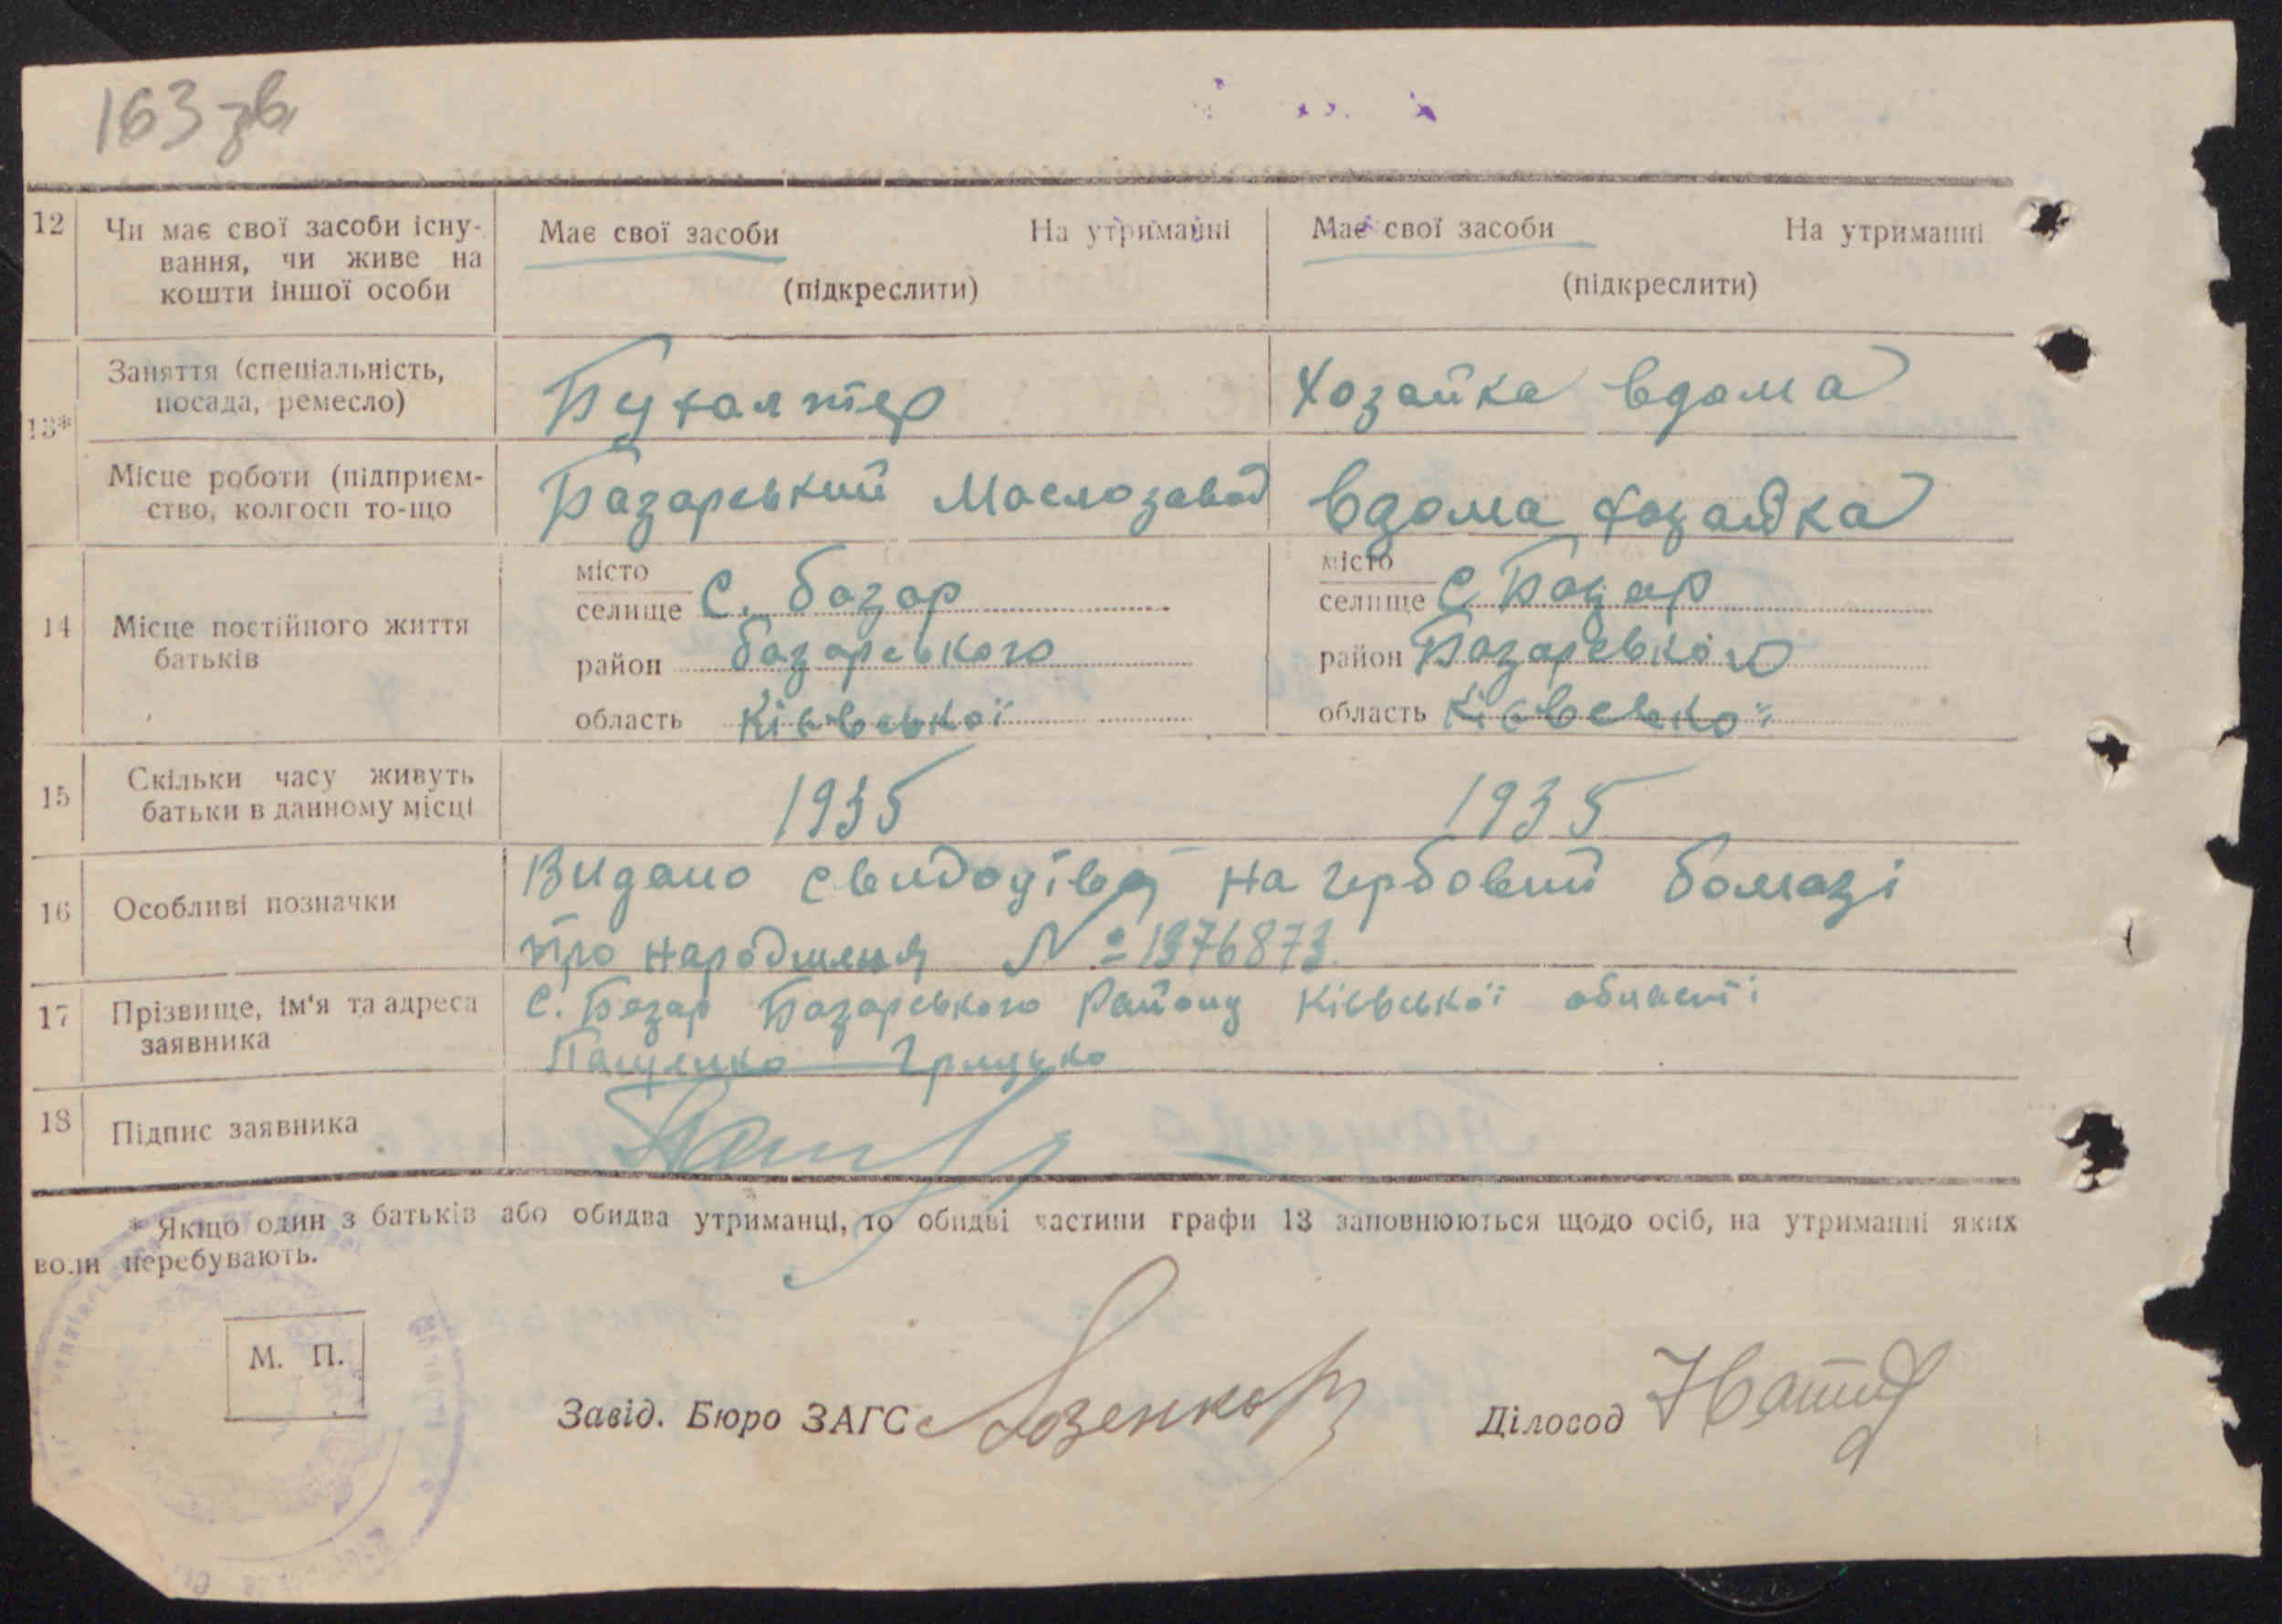 163 зв
12 Чи має свої засоби існу-
вання, чи живе на
кошти іншої особи
Має свої засоби На утриманні
(підкреслити)
Має свої засоби На утриманні
(підкреслити)
13*
Заняття (спеціальність,
посада, ремесло)
Бухалтер
Хозайка вдома
Місце роботи (підприєм-
ство, колгосп то-що
Базарський Маслозавод
вдома хозайка
14 Місце постійного життя
батьків
місто
селище С. Базар
район базарського
область Київської
місто
селище С Базар
район Базарського
область Київської
15 Скільки часу живуть
батьки в данному місці
1935
1935
16 Особливі позначки
Видано на гербовий бомазі
про народження № 1376873
17 Прізвище, ім'я та адреса
заявника
С. Базар Базарського Району Київської області
Пащенко Грицько
18 Підпис заявника
* Якщо один з батьків або обидва утриманці, то обидві частини графи 13 заповнюються щодо осіб, на утриманні яких
вони перебувають.
М. П.
Завід. Бюро ЗАГС
Діловод